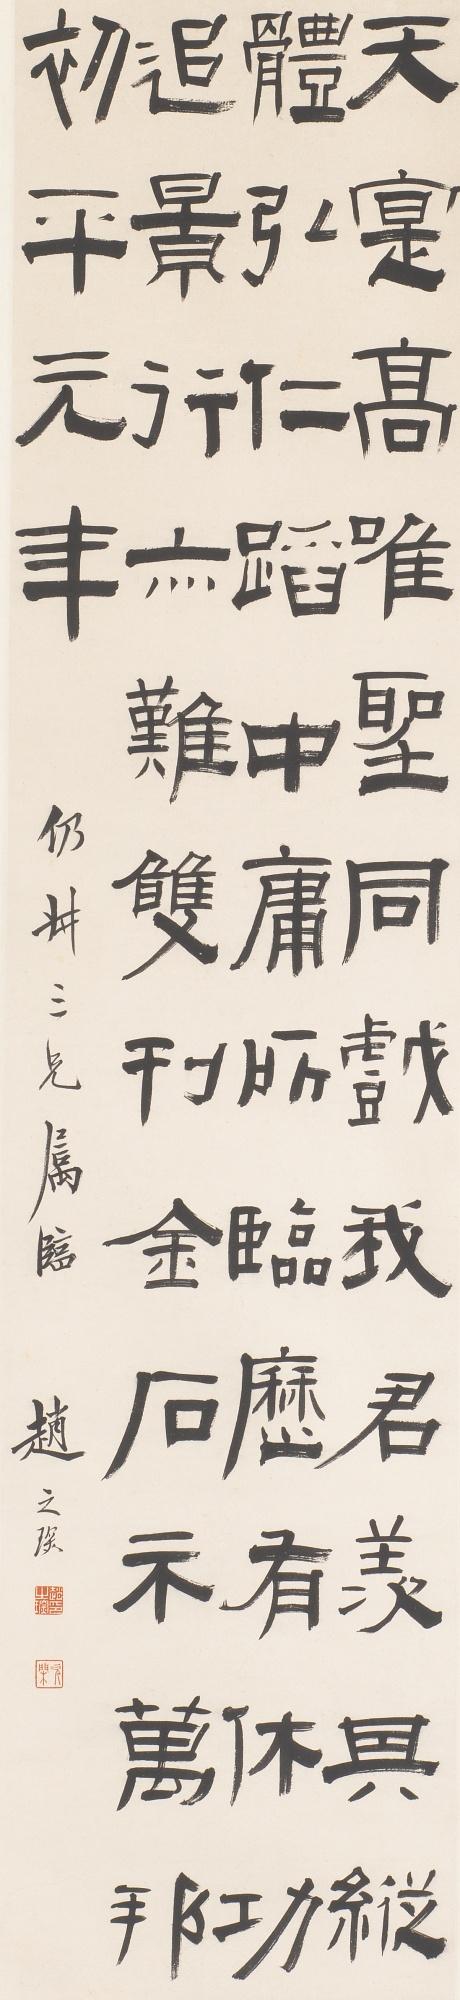 天寔高唯聖同戲我君羨其縱
體弘仁蹈中庸所臨歷有休功
追景行亦難雙刊金石示萬邦
初平元年
仍叔三兄屬臨 趙之琛